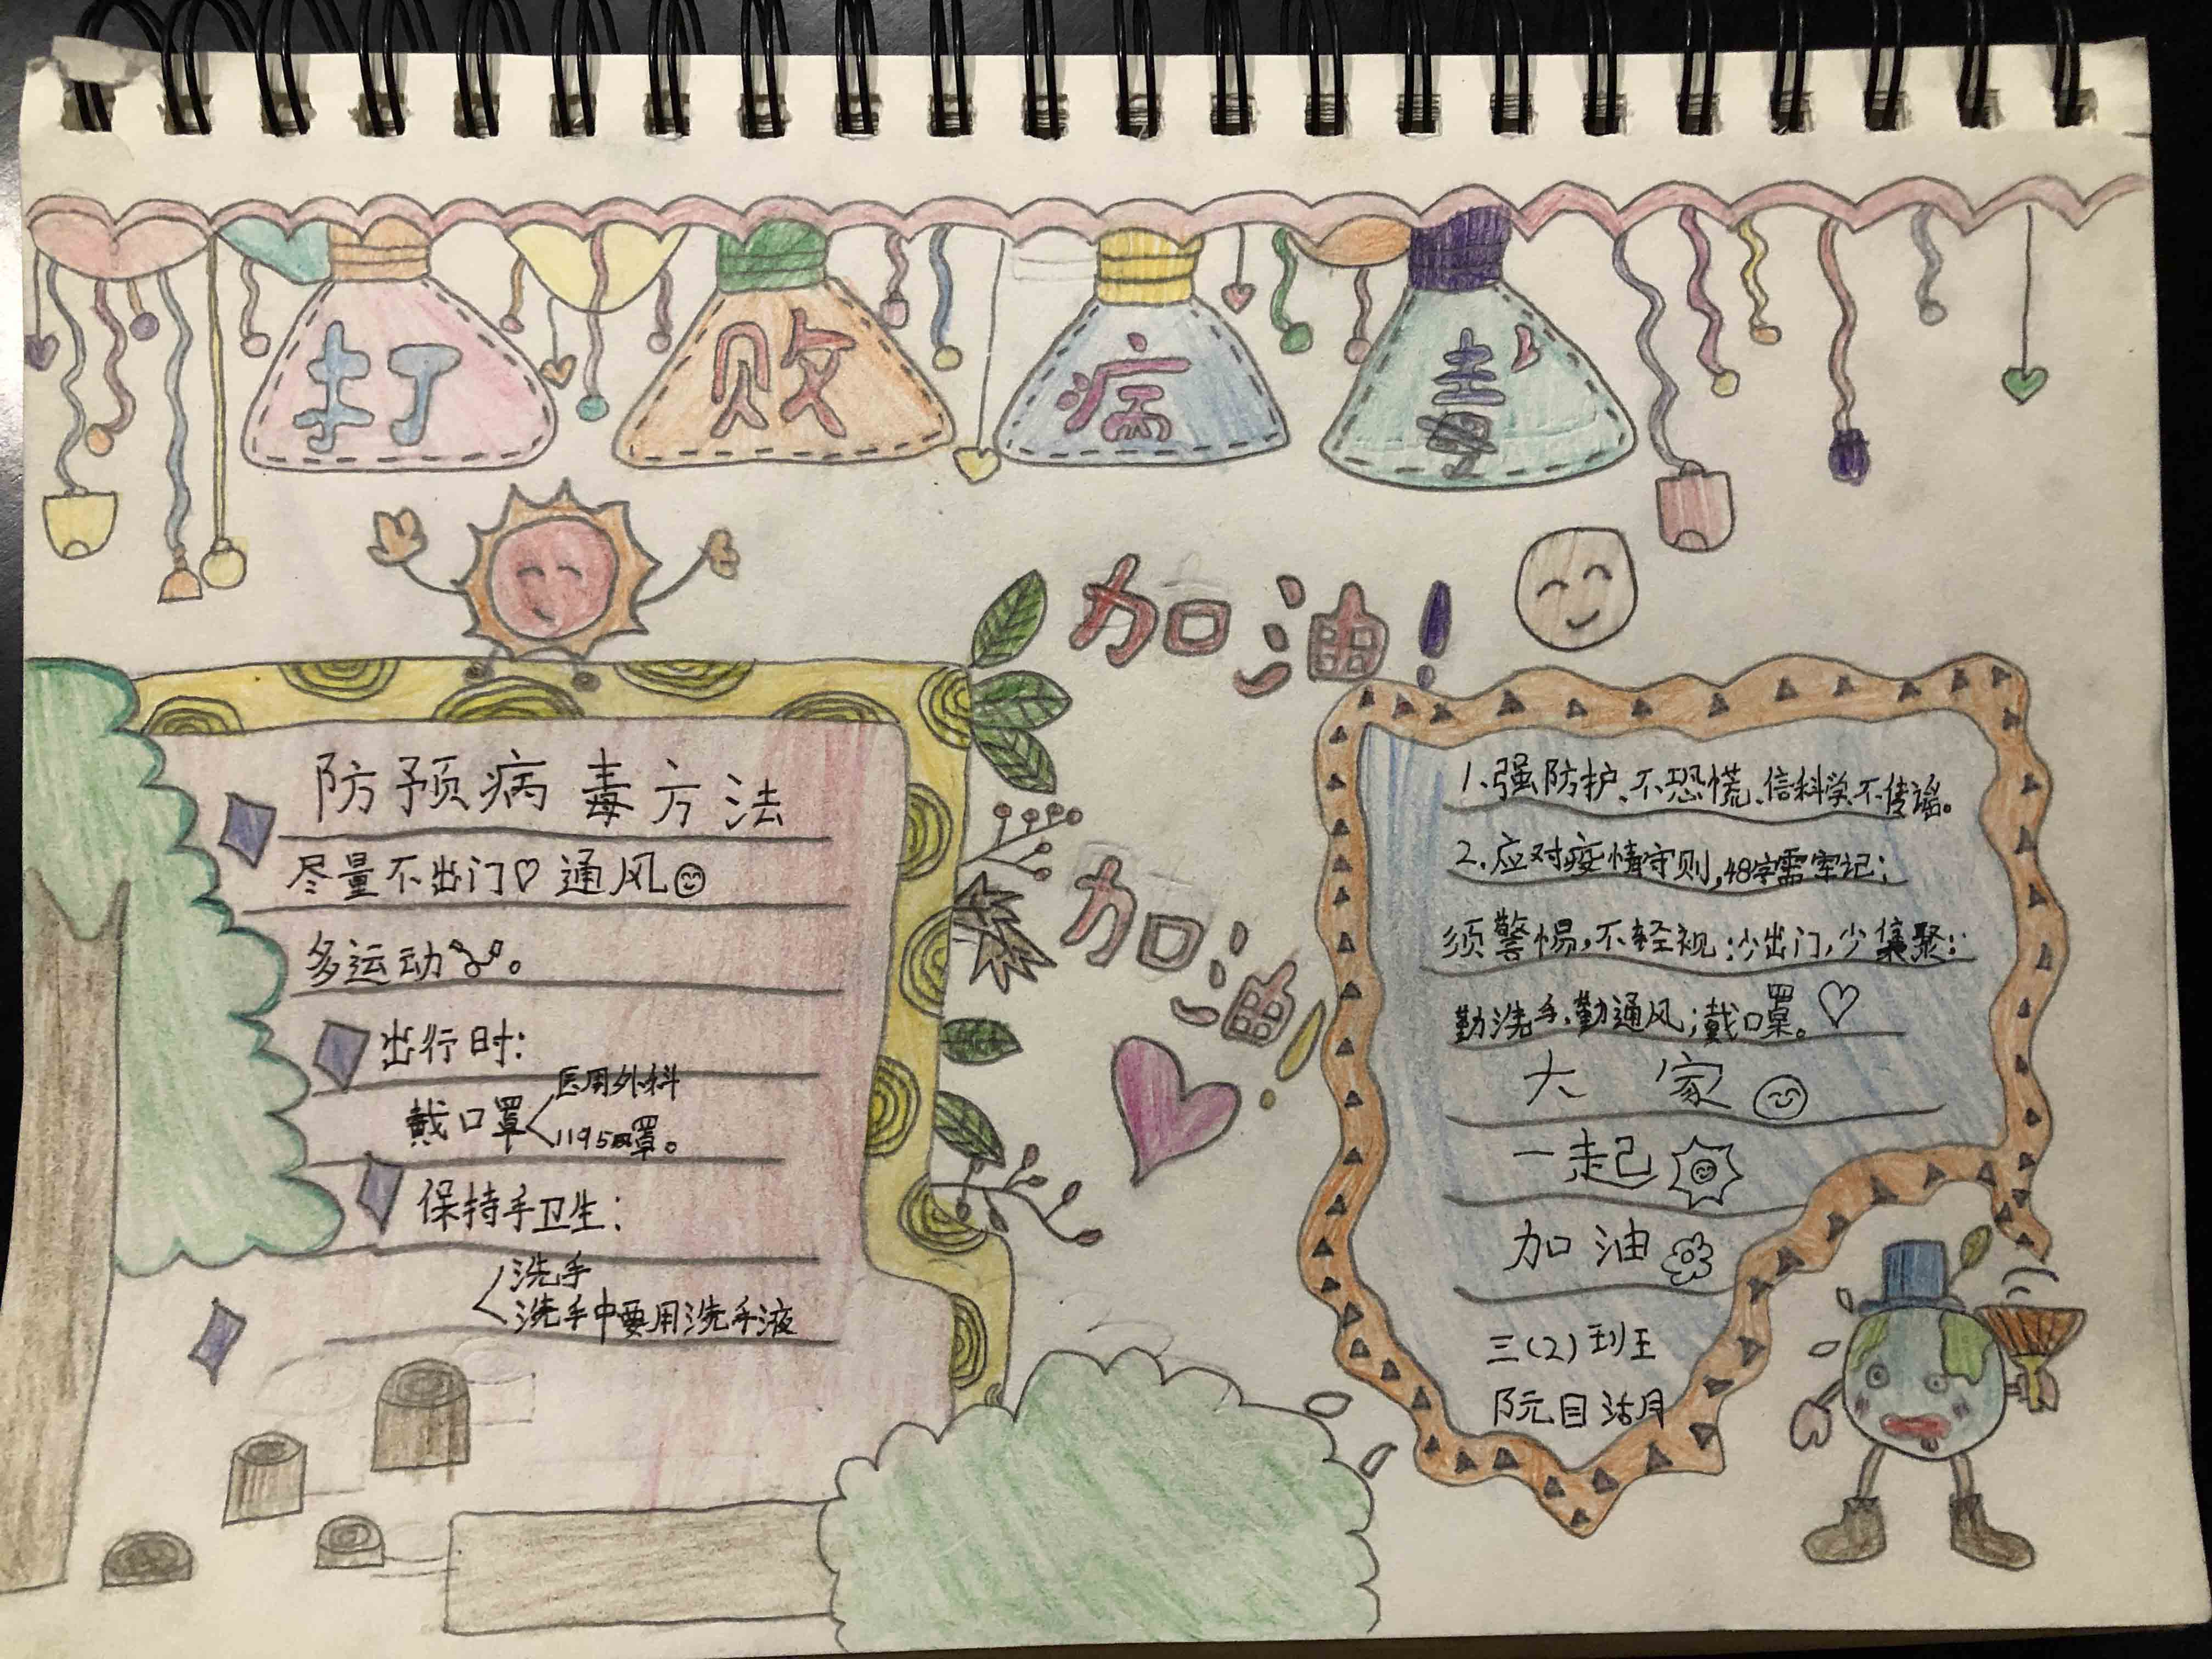 打败病毒
加油!
加油!
防预病毒方法
尽量不出门♡通风☺
多运动。
出行时:
戴口罩<医用外科
1195口罩。
保持手卫生:
<洗手
洗手中要用洗手液
1、强防护、不恐慌、信科学、不传谣。
2.应对疫情守则,48字需牢记:
须警惕,不轻视;少出门,少集聚;
勤洗手,勤通风;戴口罩。♡
大家☺
一起
加油
三(2)班